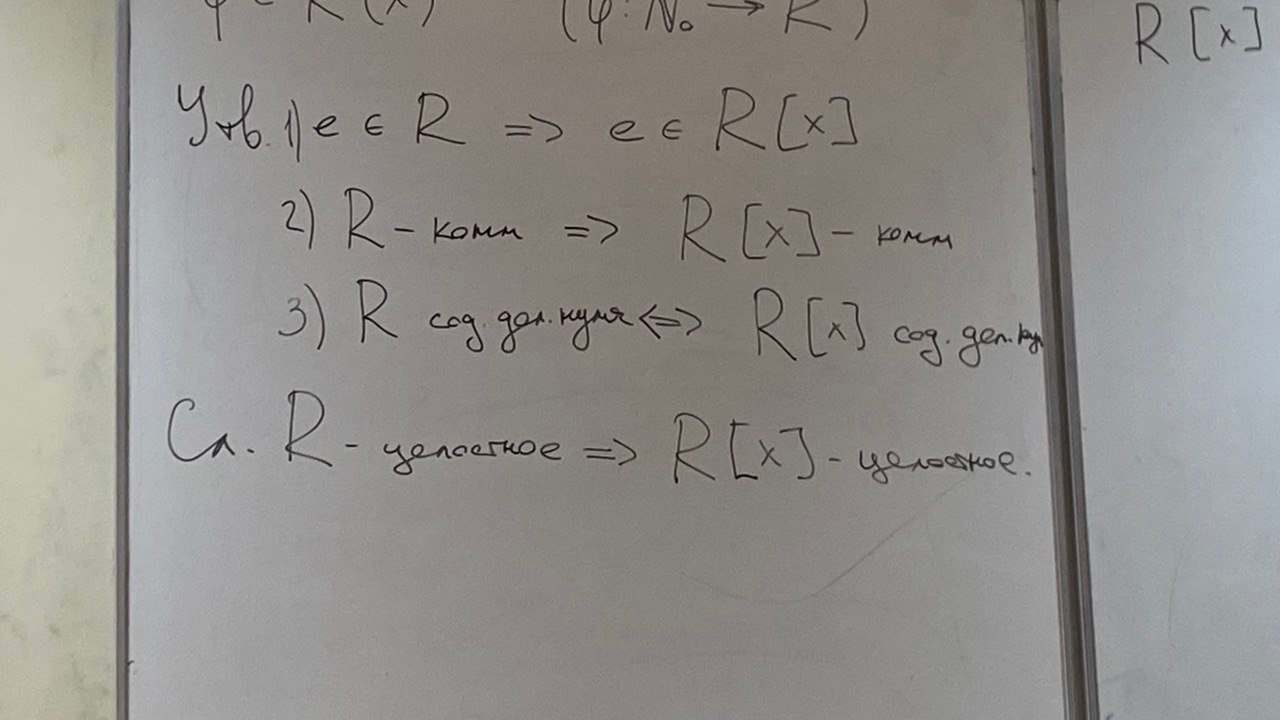 φ R(x) (φ: N₀ → R)
R [x]
Утв. 1) e ∈ R => e ∈ R[x]
2) R - комм => R[x] - комм
3) R сод. дел. нуля <=> R[x] сод. дел.
Сл. R - целостное => R[x] - целостное.